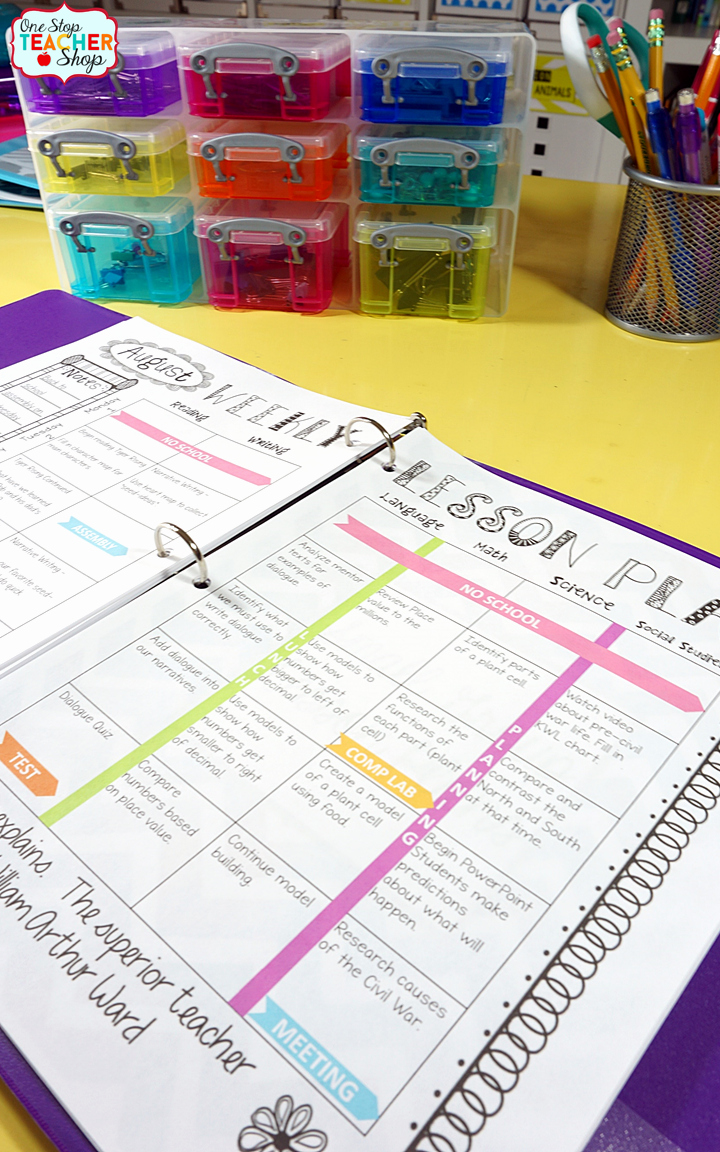 One Stop
TEACHER
Shop
ANIMALS
August
WEEKLY
Notes
Back to
School
Monday
Tuesday
Reading
Writing
NO SCHOOL
Begin reading Tiger Rising
main characters.
"Narrative Writing -
Use heart map to collect
"seed ideas"
Tiger Rising Continued
ASSEMBLY
"Narrative Writing -
LESSON PLA
Language
Math
Science
Social Studies
NO SCHOOL
Analyze mentor
texts for
examples of
dialogue.
Review Place
value to the
millions.
Identify parts
of a plant cell
Watch video
about pre-civil
war life. Fill in
KWL chart.
Identify what
we must use to
write dialogue
correctly
Use models to
show how
numbers get
bigger to left of
decimal.
Research the
functions of
each part (plant
cell)
Compare and
contrast the
North and South
at that time.
Add dialogue into
our narratives.
Use models to
show how
numbers get
smaller to right
of decimal.
COMP LAB
Create a model
of a plant cell
using food.
Begin PowerPoint
Students make
predictions
about what will
happen.
Dialogue Quiz
TEST
Compare
numbers based
on place value.
Continue model
building.
Research causes
of the Civil War.
MEETING
LUNCH
PLANNING
explains. The superior teacher
William Arthur Ward